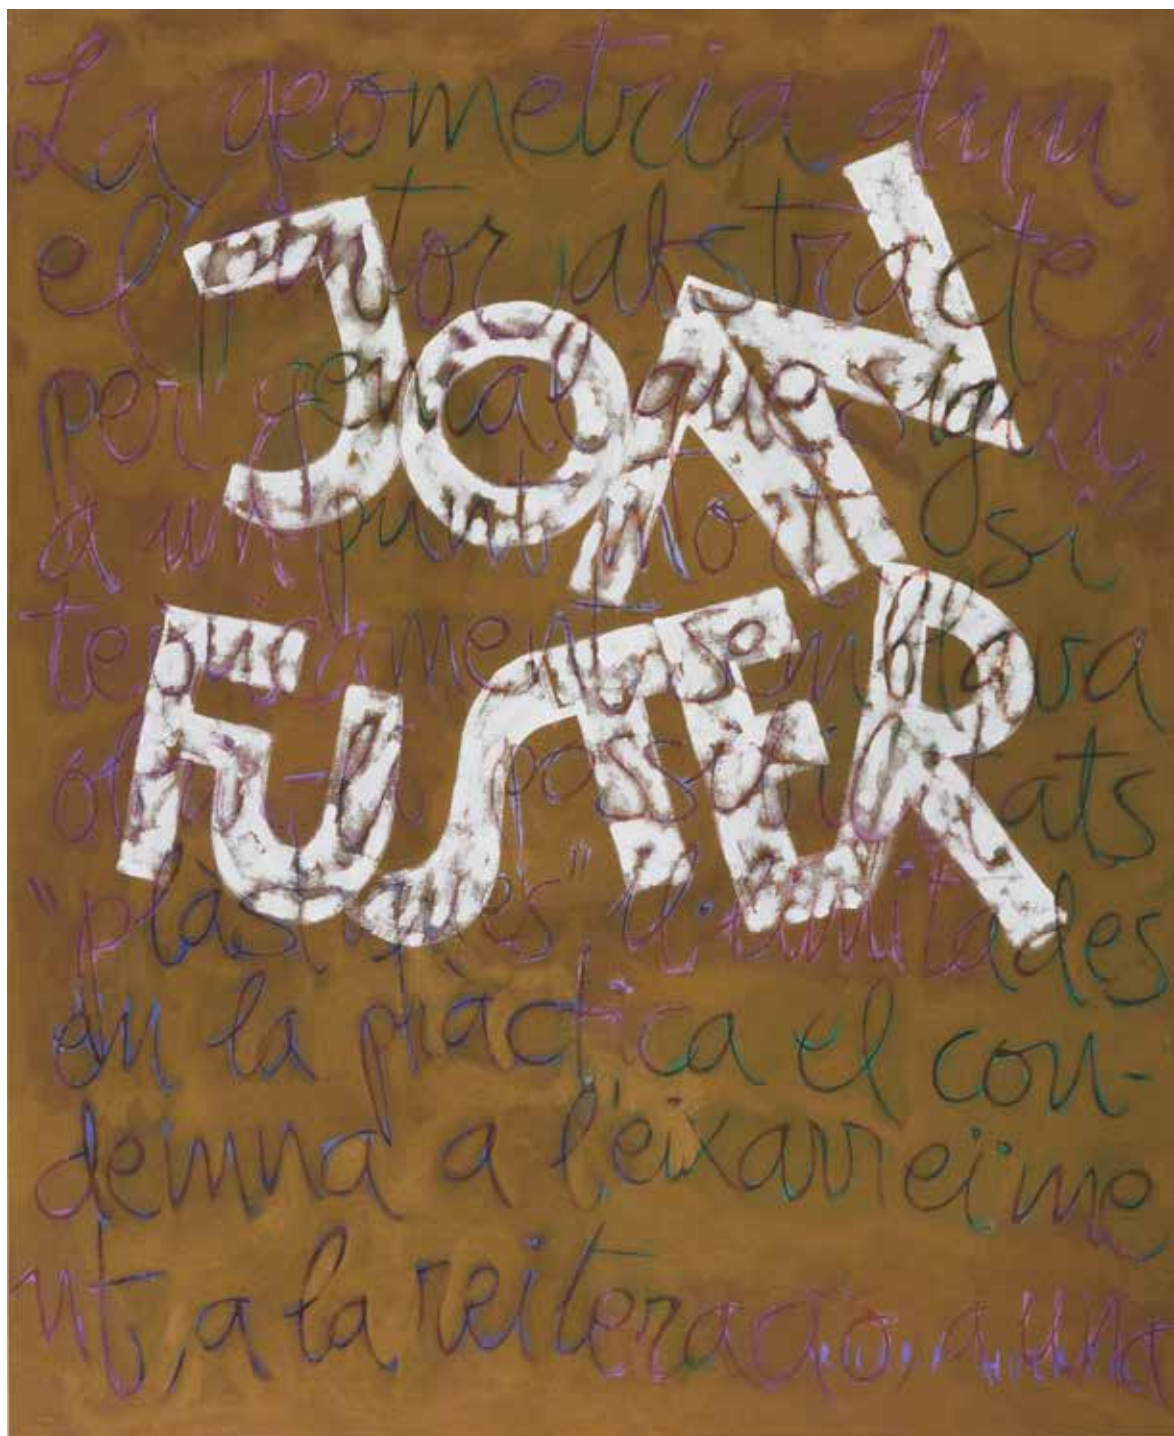 La geometria duu
el pintor abstracte,
per genial que sigui
JOAN
a un punt mort, si
teòricament semblava
FUSTER
possibilitats
"plàstiques" il·limitades
en la pràctica el con-
demna a l'eixarreïme
nt, a la reiteració, a una